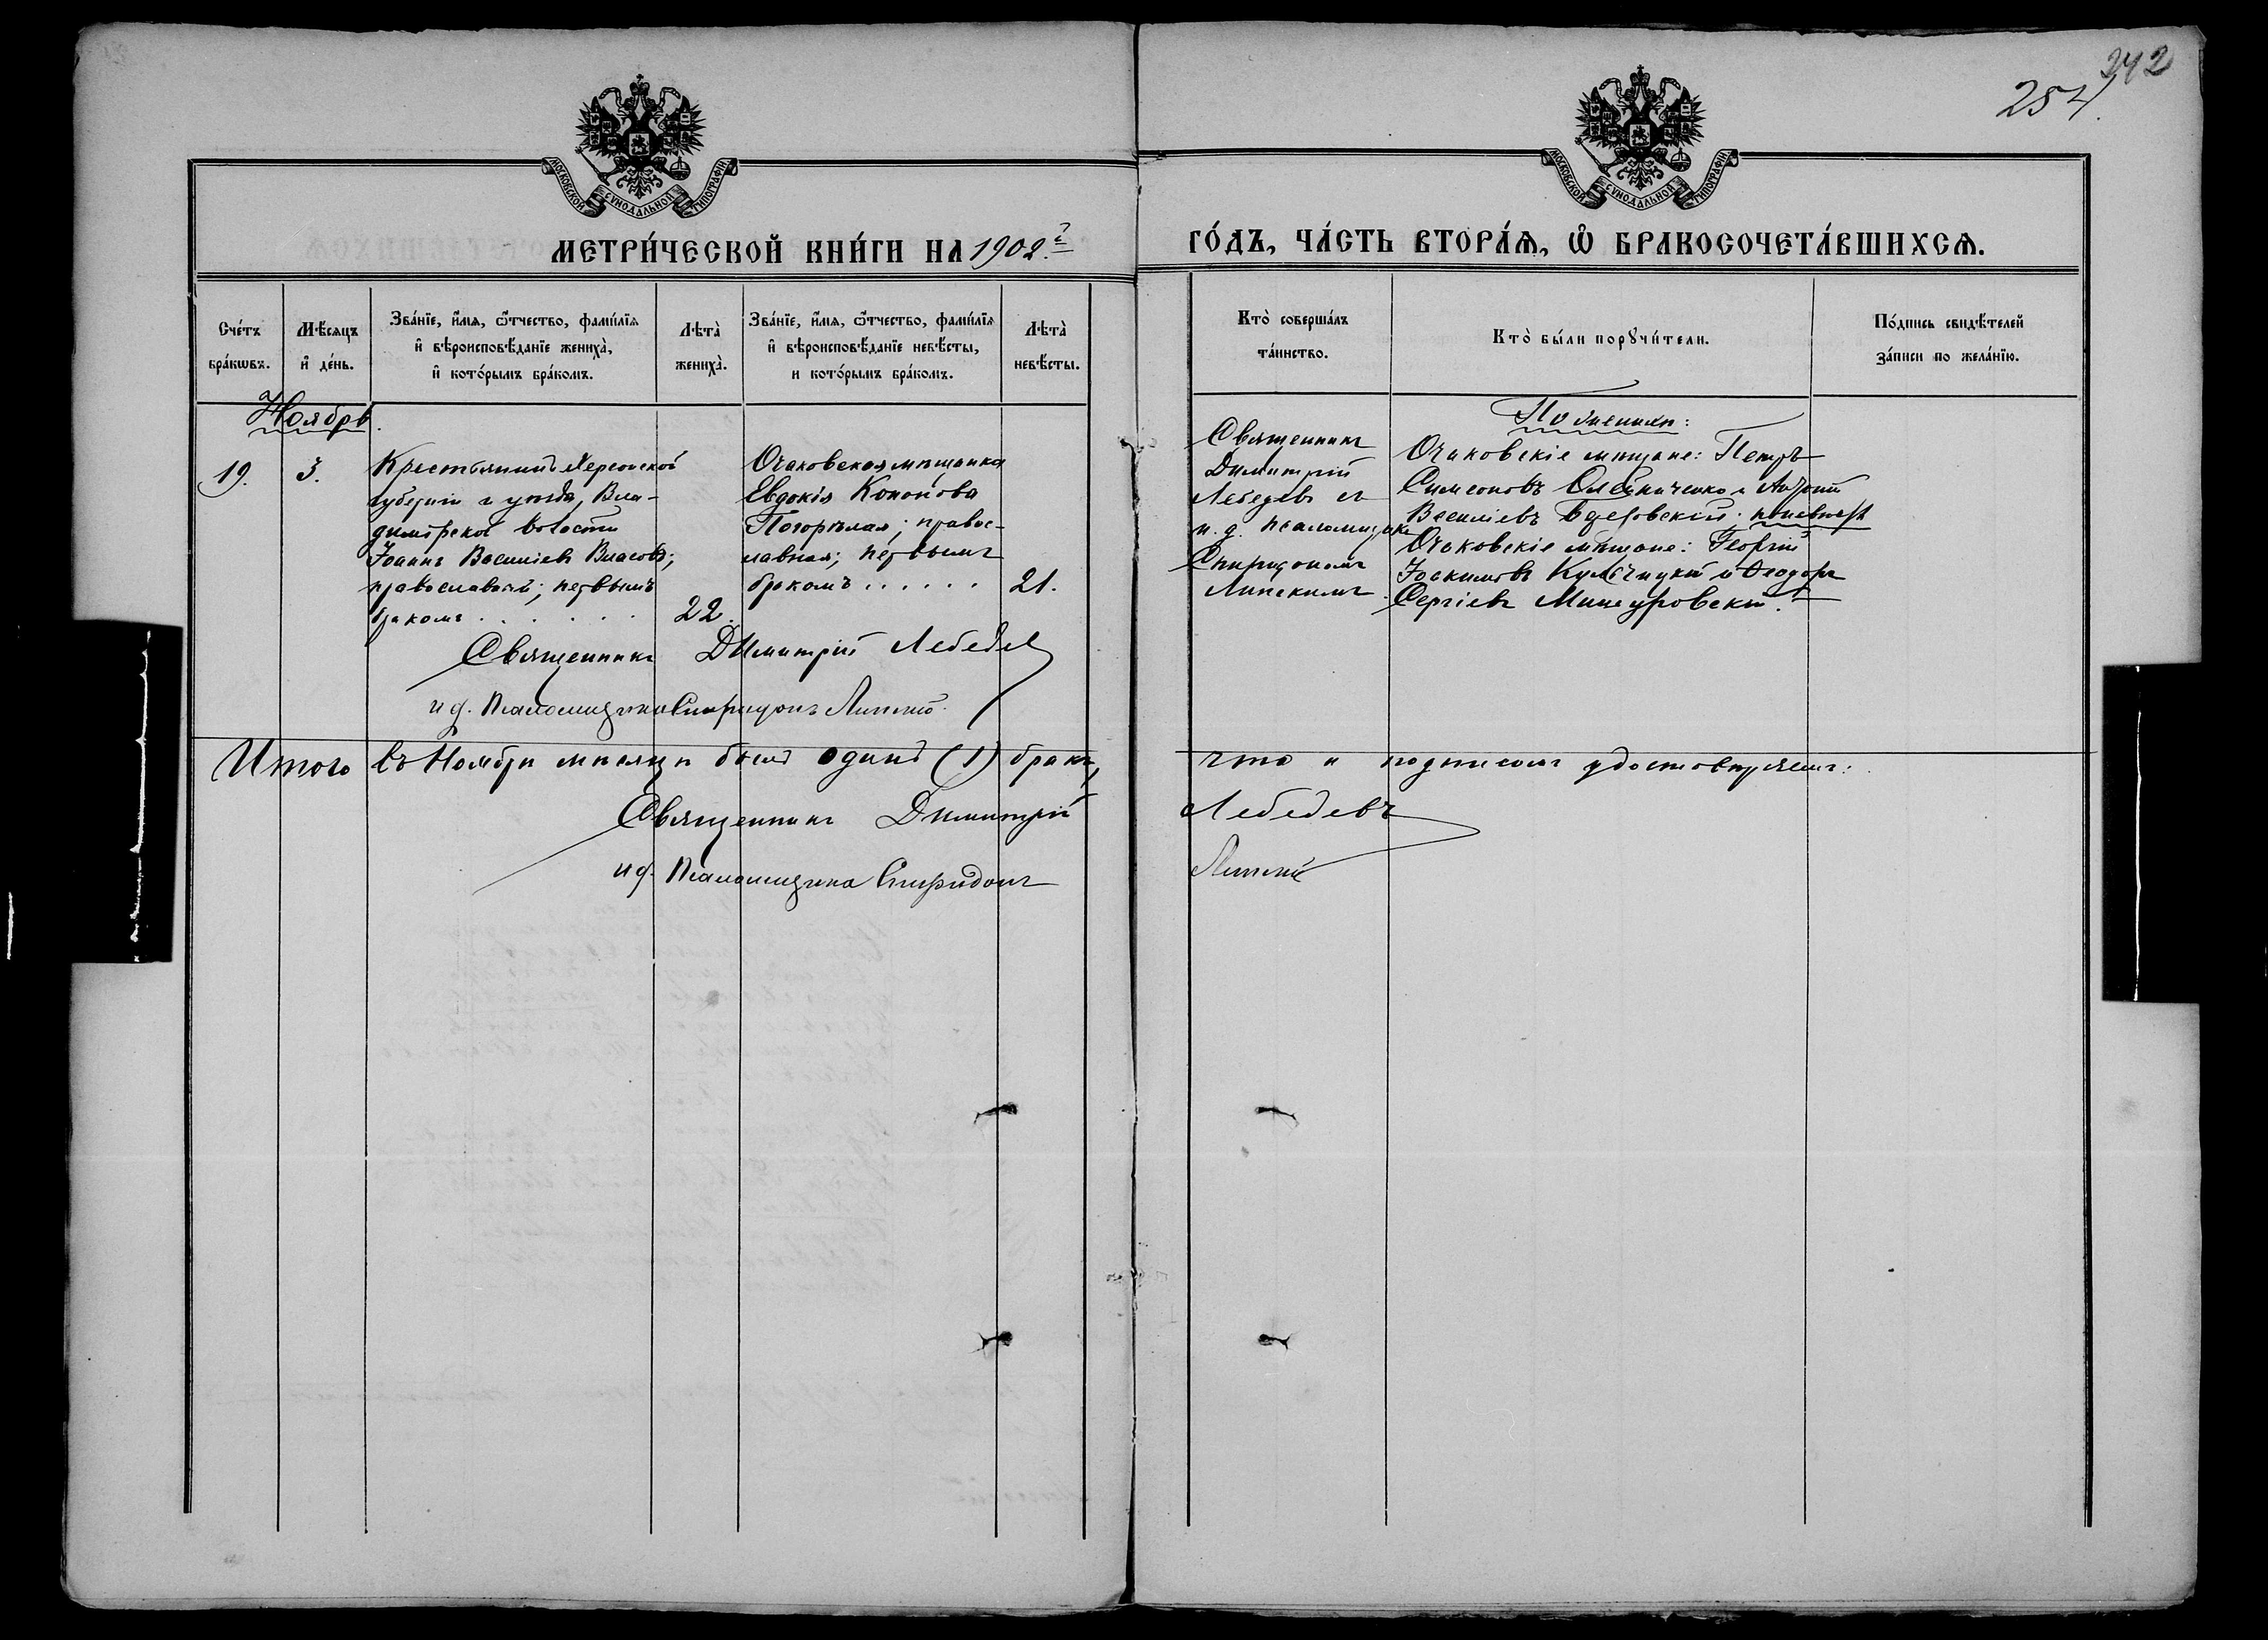 242
254.
МОСКОВСКОЙ СѴНОДАЛЬНОЙ ТИПОГРАФІИ.
МОСКОВСКОЙ СѴНОДАЛЬНОЙ ТИПОГРАФІИ.
МЕТРИ́ЧЕСКОЙ КНИ́ГИ НА 1902 г.
ГО́ДЪ, ЧА́СТЬ ВТОРА́Ѧ, Ѽ БРАКОСОЧЕТА́ВШИХСѦ.
Сче́тъ
бра́кѡвъ.
Мѣ́сяцъ
и҆ де́нь.
Зва́нїе, и҆́мѧ, ѻ҆́тчество, фамı́лїѧ
и҆ вѣроисповѣ́данїе жениха̀,
и҆ кото́рымъ бра́комъ.
Лѣта̀
жениха̀.
Зва́нїе, и҆́мѧ, ѻ҆́тчество, фамı́лїѧ
и҆ вѣроисповѣ́данїе невѣ́сты,
и кото́рымъ бра́комъ.
Лѣта̀
невѣ́сты.
Кто̀ соверша́лъ
та́инство.
Кто̀ бы́ли порꙋчи́тели.
По́дпись свидѣ́телей
за́писи по жела́нїю.
Ноябрь.
19.
3.
Крестьянинъ Херсонской
губерніи и уѣзда, Вла-
димірской волости
Іоаннъ Василіевъ Власовъ;
православный; первымъ
бракомъ . . . . . .
22.
Очаковская мѣщанка
Евдокія Кононова
Погорѣлая; правос-
лавная; первымъ
бракомъ . . . . . .
21.
Священникъ
Димитрій
Лебедевъ съ
и. д. псаломщика
Спиридономъ
Липскимъ.
По женихѣ:
Очаковскіе мѣщане: Петръ
Симеоновъ Олейниченко и Андрей
Василіевъ по невѣстѣ
Очаковскіе мѣщане: Георгій
Іоакимовъ Кульчицкій и Ѳеодоръ
Сергіевъ
Священникъ Димитрій Лебедевъ
и д. Псаломщика Спиридонъ Липскій.
Итого въ Ноябрѣ мѣсяцѣ былъ одинъ (1) бракъ,
что и подписомъ удостовѣряемъ:
Священникъ Димитрій
Лебедевъ
и д. Псаломщика Спиридонъ
Липскій